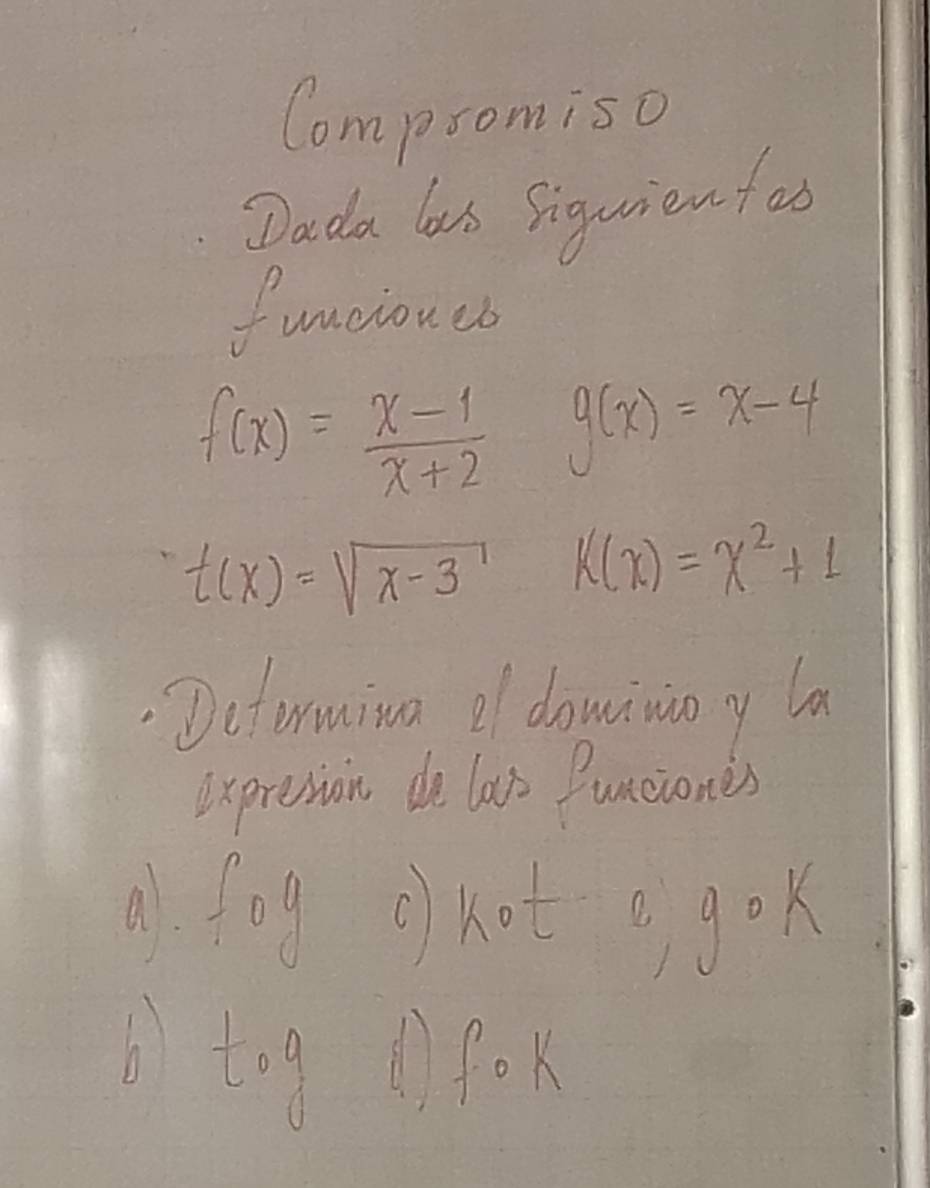 Compromiso
. Dada las siguientes
funciones
f(x) = x-1/x+2 g(x) = x-4
t(x) = √x-3 K(x) = x² + 1
. Determina el dominio y la
expresión de las funciones
a). fog c) kot e, gok
b) tog d) fok